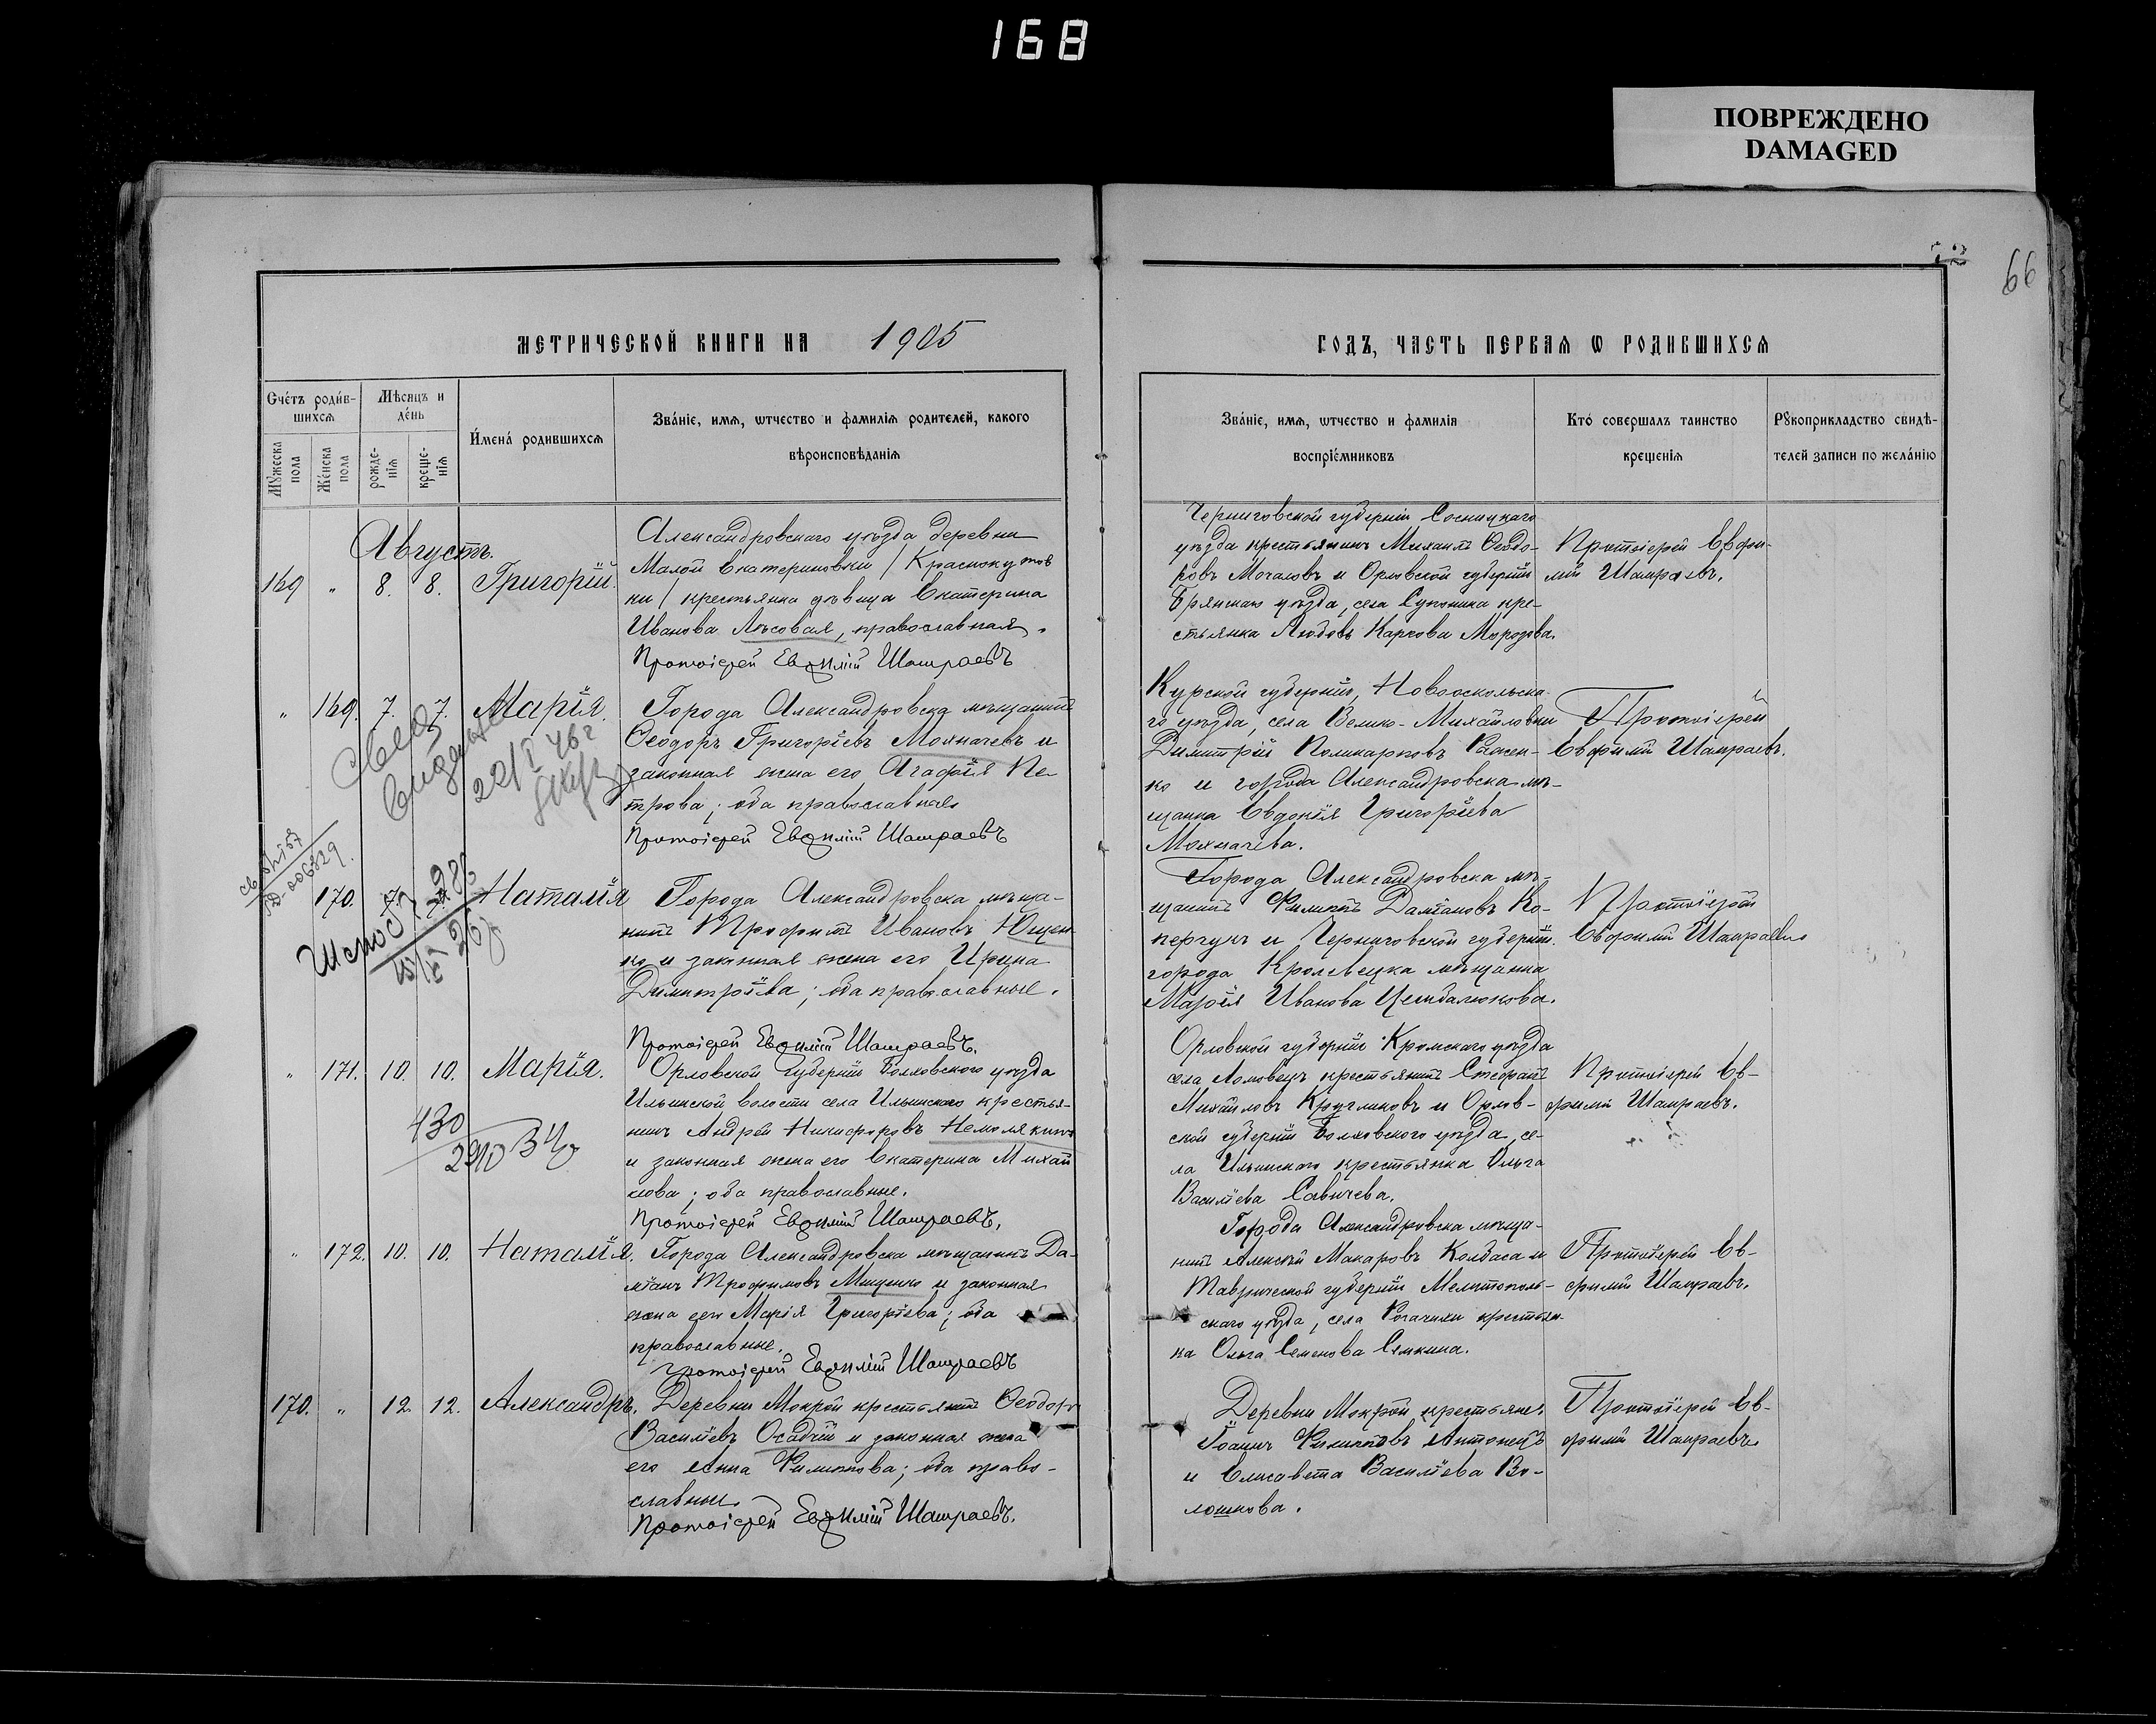 168
ПОВРЕЖДЕНО
DAMAGED
66
МЕТРИЧЕСКОЙ КНИГИ НА 1905
ГОДЪ, ЧАСТЬ ПЕРВАѦ Ѡ РОДИВШИХСѦ
Счéтъ роди́в-
шихсѧ
Мужеска
пола
Жéнска
пола
Мѣсяцъ и
дéнь
рожде-
нїѧ
креще-
нїѧ
И́мена́ родившихсѧ
Зва́нїе, имѧ, ѡтчество и фамилїѧ родителей, какого
вѣроисповѣданїѧ
Зва́нїе, имѧ, ѡтчество и фамилїѧ
воспрїéмниковъ
Кто́ совершалъ таинство
крещенїѧ
Рꙋкоприкладство свидѣ-
телей записи по жела́нїю
Августъ.
169 " 8. 8. Григорій.
Александровскаго уѣзда деревни
Малой Екатериновки / Краснокутов
ки / крестьянка дѣвица Екатерина
Иванова Лѣсовая, православная.
Протоіерей Евѳимій Шамраевъ
Черниговской губерніи Сосницкаго
уѣзда крестьянинъ Михаилъ Ѳеодо-
ровъ Мочаловъ и Орловской губерніи
Брянскаго уѣзда, села Супонина кре-
стьянка Любовь Карпова Морозова.
Протоіерей Евфи-
мій Шамраевъ.
" 169. 7. 7. Марія.
Города Александровска мѣщанинъ
Ѳеодоръ Григоріевъ Мохначевъ и
законная жена его Агафія Пе-
трова; оба православные
Протоіерей Евѳимій Шамраевъ
Курской губерніи, Новооскольска-
го уѣзда, села Велико-Михайловки
Димитрій Поликарповъ
ко и города Александровска мѣ-
щанка Евдокія Григоріева
Мохначева.
Протоіерей
Евфимій Шамраевъ.
22/I 46 г
170. 7. Наталія
Города Александровска мѣща-
нинъ Трофимъ Ивановъ Ющен-
ко и законная жена его Ирина
Димитріева; оба православные.
Протоіерей Евѳимій Шамраевъ.
Города Александровска мѣ-
щанинъ Филиппъ Даміановъ Ко-
пергукъ и Черниговской губерніи
города Кролевецка мѣщанка
Марія Иванова
Протоіерей
Евфимій Шамраевъ
" 171. 10. 10. Марія.
430
2910
Орловской губерніи Болховского уѣзда
Ильинской волости села Ильинскаго крестья-
нинъ Андрей Никифоровъ Немолякинъ
и законная жена его Екатерина Михай
лова; оба православные.
Протоіерей Евѳимій Шамраевъ.
Орловской губерніи Кромскаго уѣзда
села Ломовецъ крестьянинъ Стефанъ
Михайловъ Кругликовъ и Орлов-
ской губерніи Болховского уѣзда, се-
ла Ильинскаго крестьянка Ольга
Василіева Савичева.
Протоіерей Ев-
фимій Шамраевъ.
" 172. 10. 10. Наталія.
Города Александровска мѣщанинъ Да-
міанъ Трофимовъ Мищенко и законная
жена его Марія Григоріева; оба
православные.
Протоіерей Евѳимій Шамраевъ
Города Александровска мѣща-
нинъ Алексѣй Макаровъ Колбаса и
Таврической губерніи Мелитополь-
скаго уѣзда, села Рогачики крестьян-
ка Ольга Семенова Сямкина.
Протоіерей Ев-
фимій Шамраевъ.
170. " 12. 12. Александръ.
Деревни Мокрой крестьянинъ Ѳеодоръ
Василіевъ Осадчій и законная жена
его Анна Филиппова; оба право-
славные.
Протоіерей Евѳимій Шамраевъ.
Деревни Мокрой крестьяне:
Іоаннъ Филипповъ Антонецъ
и Елисавета Василіева Во-
лошкова.
Протоіерей Ев-
фимій Шамраевъ